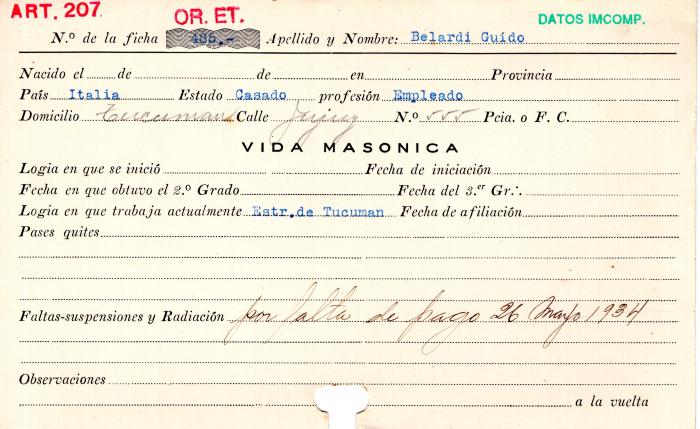 ART. 207.
OR. ET.
DATOS IMCOMP.
N.º de la ficha 486.- Apellido y Nombre: Belardi Guido
Nacido el de de en Provincia
País Italia Estado Casado profesión Empleado
Domicilio Tucuman Calle Jujuy N.º 555 Pcia. o F. C.
VIDA MASONICA
Logia en que se inició Fecha de iniciación
Fecha en que obtuvo el 2.º Grado Fecha del 3.er Gr∴
Logia en que trabaja actualmente Estr.de Tucuman Fecha de afiliación
Pases quites
Faltas-suspensiones y Radiación por falta de pago 26 Mayo 1934
Observaciones
a la vuelta